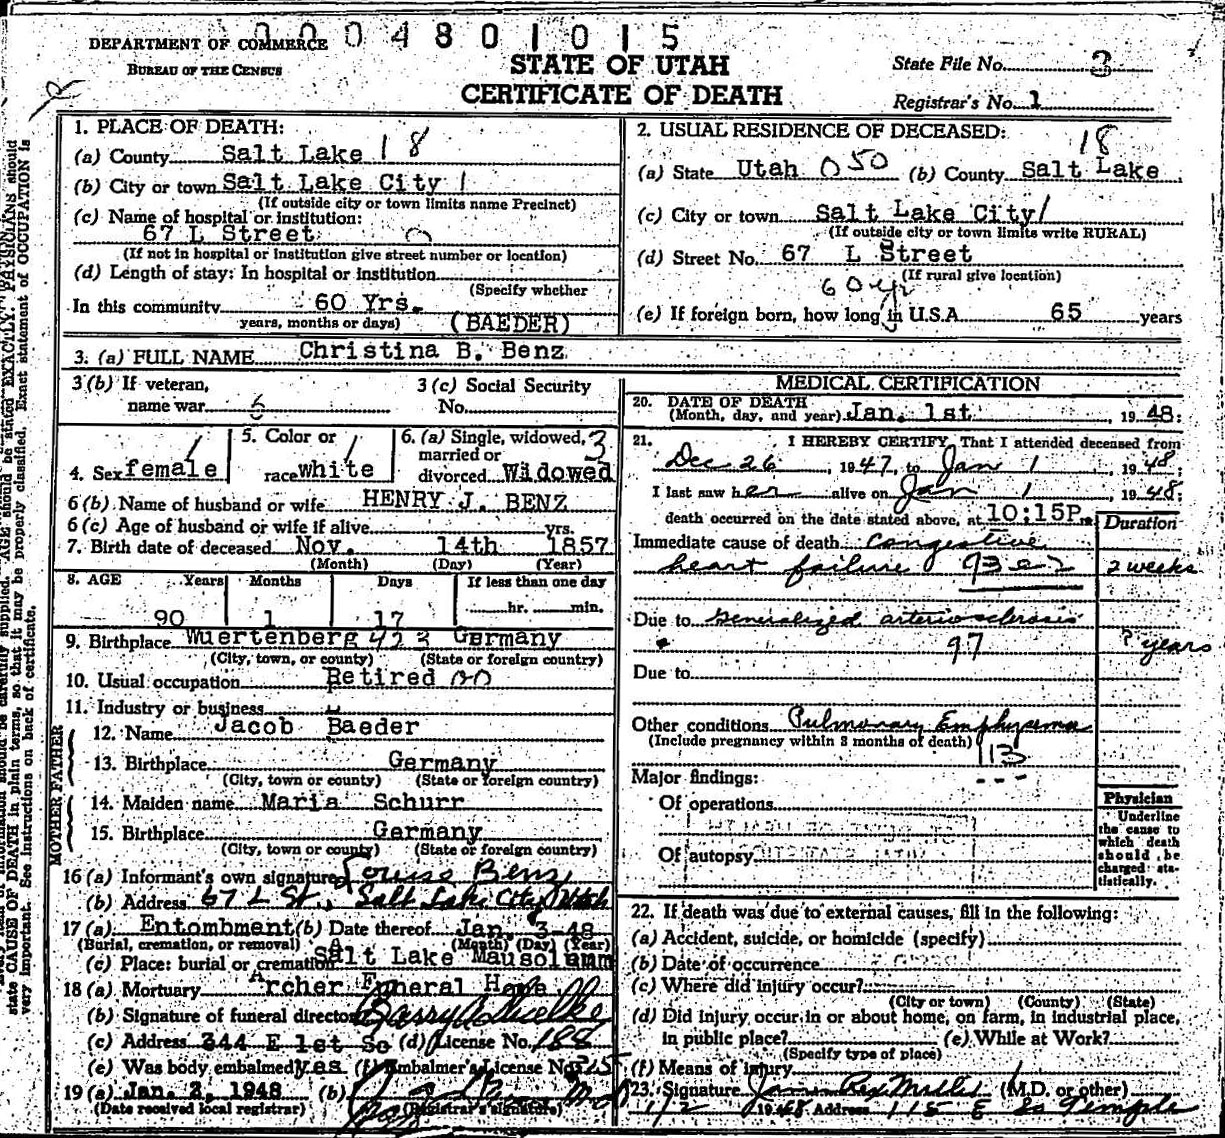 0004801015
DEPARTMENT OF COMMERCE
BUREAU OF THE CENSUS
STATE OF UTAH
CERTIFICATE OF DEATH
State File No. 3
Registrar's No. 1
1. PLACE OF DEATH:
(a) County Salt Lake 18
(b) City or town Salt Lake City 1
(If outside city or town limits name Precinct)
(c) Name of hospital or institution:
67 L Street
(If not in hospital or institution give street number or location)
(d) Length of stay: In hospital or institution
(Specify whether
In this community 60 Yrs.
years, months or days) (BAEDER)
2. USUAL RESIDENCE OF DECEASED:
18
(a) State Utah 050 (b) County Salt Lake
(c) City or town Salt Lake City 1
(If outside city or town limits write RURAL)
(d) Street No. 67 L Street
(If rural give location)
60 yr
(e) If foreign born, how long in U.S.A. 65 years
3. (a) FULL NAME Christina B. Benz
3 (b) If veteran, name war
3 (c) Social Security No.
4. Sex female
5. Color or race white
6. (a) Single, widowed, married or divorced Widowed 3
6 (b) Name of husband or wife HENRY J. BENZ
6 (c) Age of husband or wife if alive yrs.
7. Birth date of deceased Nov. 14th 1857
(Month) (Day) (Year)
8. AGE Years Months Days If less than one day
90 1 17 hr. min.
9. Birthplace Wuertenberg 423 Germany
(City, town, or county) (State or foreign country)
10. Usual occupation Retired
11. Industry or business
FATHER
12. Name Jacob Baeder
13. Birthplace Germany
(City, town or county) (State or foreign country)
MOTHER
14. Maiden name Maria Schurr
15. Birthplace Germany
(City, town or county) (State or foreign country)
16 (a) Informant's own signature Louise Benz
(b) Address 67 L St., Salt Lake City Utah
17 (a) Entombment (b) Date thereof Jan. 3-48
(Burial, cremation, or removal) (Month) (Day) (Year)
(c) Place: burial or cremation Salt Lake Mausoleum
18 (a) Mortuary Archer Funeral Home
(b) Signature of funeral director
(c) Address 344 E 1st So (d) License No. 188
(e) Was body embalmed yes (f) Embalmer's License No. 215
19 (a) Jan. 2, 1948 (b)
(Date received local registrar) (Registrar's signature)
MEDICAL CERTIFICATION
20. DATE OF DEATH
(Month, day, and year) Jan. 1st, 1948.
21. I HEREBY CERTIFY, That I attended deceased from
Dec 26, 1947, to Jan 1, 1948;
I last saw her alive on Jan 1, 1948;
death occurred on the date stated above, at 10:15P m.
Duration
Immediate cause of death congestive
heart failure 93 2 weeks
Due to Generalized arteriosclerosis
97 ? years
Due to
Other conditions Pulmonary Emphysema
(Include pregnancy within 3 months of death) 113
Major findings:
Of operations
Of autopsy
Physician
Underline
the cause to
which death
should be
charged sta-
tistically.
22. If death was due to external causes, fill in the following:
(a) Accident, suicide, or homicide (specify)
(b) Date of occurrence
(c) Where did injury occur?
(City or town) (County) (State)
(d) Did injury occur in or about home, on farm, in industrial place,
in public place? (e) While at Work?
(Specify type of place)
(f) Means of injury
23. Signature James Rex Miller (M.D. or other)
1/2 1948 Address 115 E So Temple
state CAUSE OF DEATH in plain terms, so that it may be properly classified. Exact statement of OCCUPATION is
very important. See instructions on back of certificate.